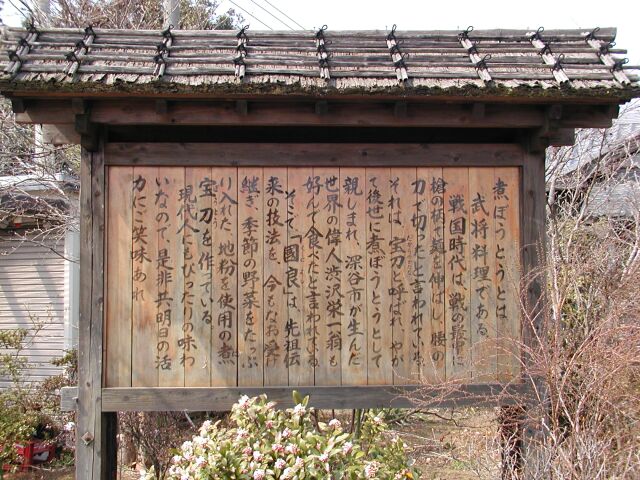 煮ぼうとうとは、
武将料理である。
戦国時代は、戦の最中に
槍の柄で麺を伸ばし、腰の
刀で切ったと言われている。
それは、宝刀と呼ばれ、やが
て後世に煮ぼうとうとして
親しまれ、深谷市が生んだ
世界の偉人渋沢栄一翁も
好んで食べたと言われている。
そこで、「国良」は、先祖伝
来の技法を、今もなお受け
継ぎ、季節の野菜をたっぷ
り入れた、地粉を使用の煮
宝刀を作っている。
現代人にもぴったりの味わ
いなので、是非共、明日の活
力にご笑味あれ